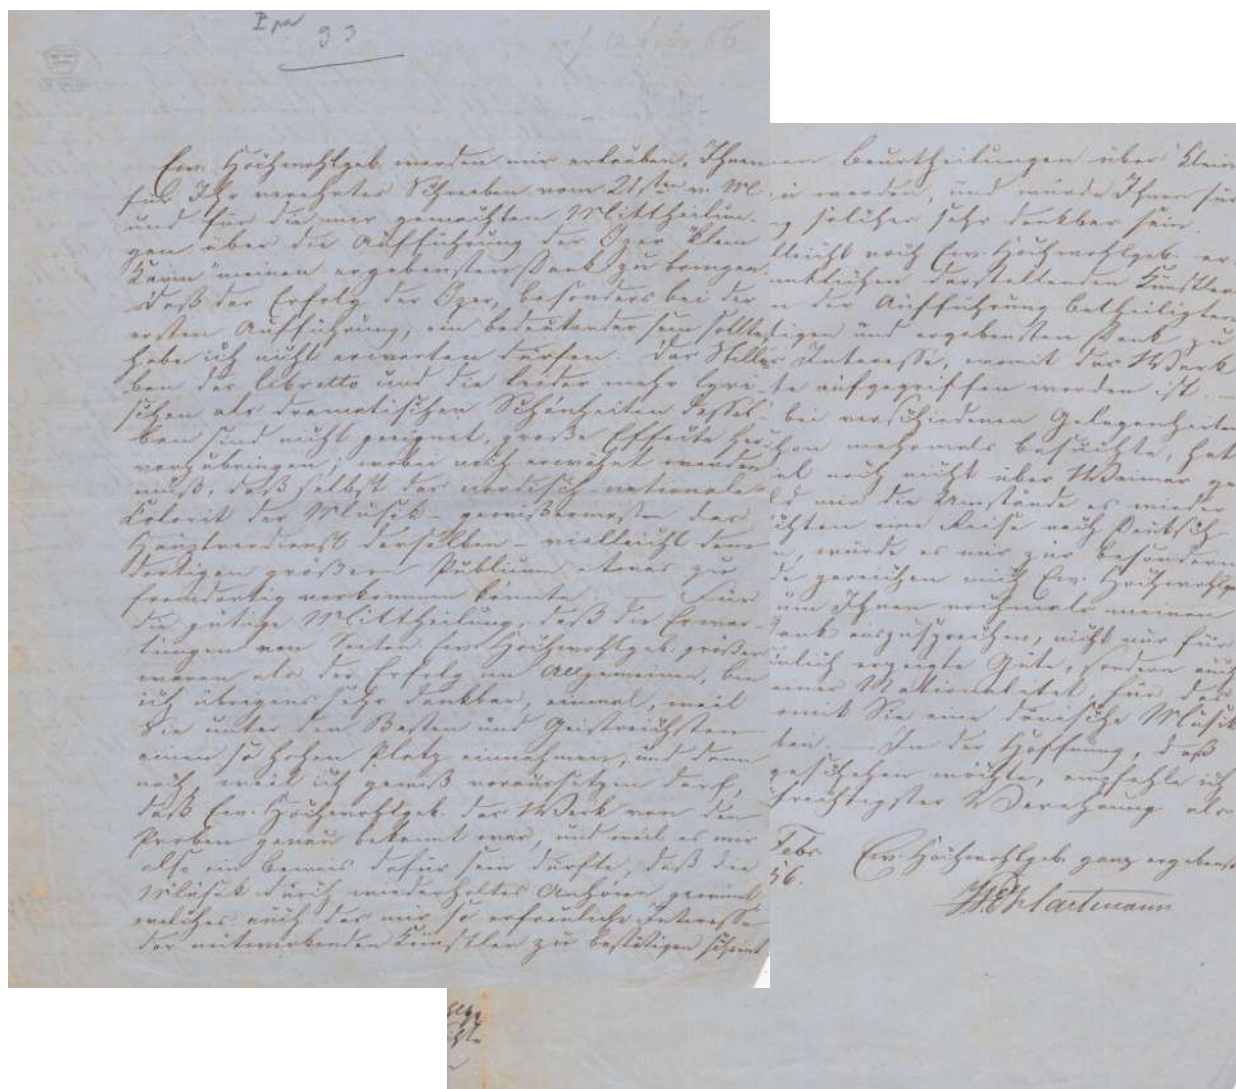 93
12 Febr 56
Ew. Hochwohlgeb. werden mir erlauben, Ihnen
für Ihr verehrtes Schreiben vom 21sten v. M.
und für die mir gemachten Mittheilun-
gen über die Aufführung der Oper "Klein
Karin" meinen ergebensten Dank zu bringen.
Daß der Erfolg der Oper, besonders bei der
ersten Aufführung, ein bedeutender sein sollte,
habe ich nicht erwarten dürfen. Das
des Libretto und die leider mehr lyri-
schen als dramatischen Schönheiten dessel-
ben sind nicht geeignet, große Effecte her-
vorzubringen, wobei noch erwähnt werden
muß, daß selbst das nordisch-nationale
Kolorit der Musik – gewißermaßen das
Hauptverdienst derselben – vielleicht dem
dortigen größern Publicum etwas zu
fremdartig vorkommen könnte. — Für
die gütige Mittheilung, daß die Erwar-
tungen von Seiten Ew. Hochwohlgeb. größer
waren als der Erfolg im Allgemeinen, bin
ich übrigens sehr dankbar, einmal, weil
Sie unter den Besten und Geistreichsten
einen so hohen Platz einnehmen, und dann
auch, weil ich gewiß voraussetzen darf,
daß Ew. Hochwohlgeb. das Werk von den
Proben genau bekannt war, und weil es mir
also ein Beweis dafür sein dürfte, daß die
Musik durch wiederholtes Anhören gewinnt,
welches auch das mir so erfreuliche Interesse
der mitwirkenden Künstler zu bestätigen scheint
Beurtheilungen über Klein
werden, und würde Ihnen für
solcher sehr dankbar sein.
noch Ew. Hochwohlgeb. er-
darstellenden Künstler
der Aufführung betheiligten
und ergebensten Dank zu
Interesse, womit das Werk
aufgegriffen worden ist. —
bei verschiedenen Gelegenheiten
mehrmals besuchte, hat
noch nicht über Weimar ge
mir die Umstände es wieder
eine Reise nach Deutsch
würde es mir zur besondern
gereichen mich Ew. Hochwohlg
um Ihnen nochmals meinen
auszusprechen, nicht nur für
erzeigte Güte, sondern auch
meiner Nationalität, für das
womit Sie eine dänische Musik
— In der Hoffnung, daß
geschehen möchte, empfehle ich
Verehrung als
Febr Ew. Hochwohlgeb. ganz ergebenst
56.
JPEHartmann